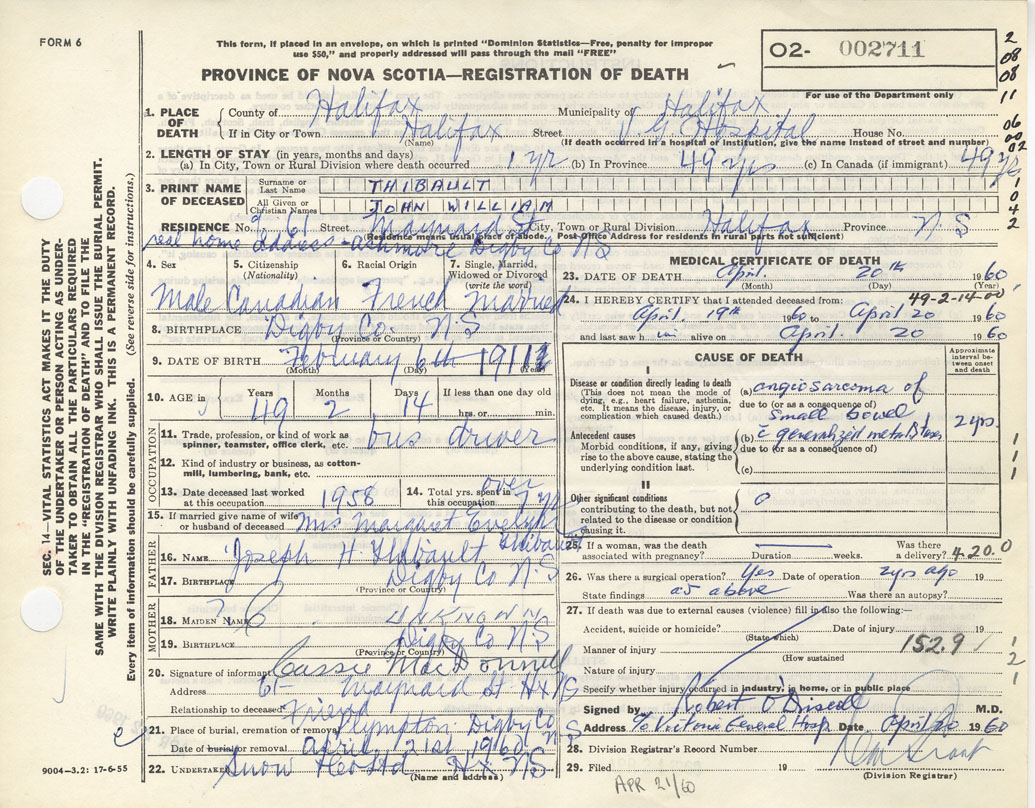 FORM 6
This form, if placed in an envelope, on which is printed "Dominion Statistics—Free, penalty for improper
use $50," and properly addressed will pass through the mail "FREE"
PROVINCE OF NOVA SCOTIA—REGISTRATION OF DEATH
O2- 002711
For use of the Department only
2
08
08
11
06
00
02
1
0
4
2
SEC. 14—VITAL STATISTICS ACT MAKES IT THE DUTY
OF THE UNDERTAKER OR PERSON ACTING AS UNDER-
TAKER TO OBTAIN ALL THE PARTICULARS REQUIRED
IN THE "REGISTRATION OF DEATH" AND FILE THE
SAME WITH THE DIVISION REGISTRAR WHO SHALL ISSUE THE BURIAL PERMIT.
WRITE PLAINLY WITH UNFADING INK. THIS IS A PERMANENT RECORD.
Every item of information should be carefully supplied. (See reverse side for instructions.)
1. PLACE OF DEATH
County of Halifax Municipality of Halifax
If in City or Town Halifax Street V. G. Hospital House No.
(Name) (If death occurred in a hospital or institution, give the name instead of street and number)
2. LENGTH OF STAY (in years, months and days)
(a) In City, Town or Rural Division where death occurred 1 yr (b) In Province 49 yrs (c) In Canada (if immigrant) 49 yrs
3. PRINT NAME OF DECEASED
Surname or Last Name THIBAULT
All Given or Christian Names JOHN WILLIAM
RESIDENCE No. 61 Street Maynard St City, Town or Rural Division Halifax Province N. S
(Residence means usual place of abode. Post-Office Address for residents in rural parts not sufficient)
real home address - Ashmore Digby Co N S
4. Sex 5. Citizenship (Nationality) 6. Racial Origin 7. Single, Married, Widowed or Divorced (write the word)
Male Canadian French Married
8. BIRTHPLACE Digby Co. N. S
(Province or Country)
9. DATE OF BIRTH February 6th 1911
(Month) (Day) (Year)
10. AGE in Years Months Days If less than one day
49 2 14 hrs. or min.
OCCUPATION
11. Trade, profession, or kind of work as spinner, teamster, office clerk, etc. bus driver
12. Kind of industry or business, as cotton-mill, lumbering, bank, etc.
13. Date deceased last worked at this occupation 1958 14. Total yrs. spent in this occupation over 7 yrs
15. If married give name of wife or husband of deceased Mrs Margaret Evelyn Thibault
FATHER
16. NAME Joseph H. Thibault
17. BIRTHPLACE Digby Co N. S
(Province or Country)
MOTHER
18. MAIDEN NAME UNKNOWN
19. BIRTHPLACE Digby Co N. S
(Province or Country)
20. Signature of informant Cassie MacDonnell
Address 61- Maynard St. Hx NS
Relationship to deceased Friend
21. Place of burial, cremation or removal Plympton Digby Co N S
Date of burial or removal April 21st 1960
22. UNDERTAKER Snow Hx NS
(Name and address)
9004—3.2: 17-6-55
MEDICAL CERTIFICATE OF DEATH
23. DATE OF DEATH April 20th 1960
(Month) (Day) (Year)
24. I HEREBY CERTIFY that I attended deceased from: 49-2-14-00
April 19th 1960 to April 20 1960
and last saw him alive on April 20 1960
CAUSE OF DEATH
Approximate interval between onset and death
I
Disease or condition directly leading to death
(This does not mean the mode of dying, e.g., heart failure, asthenia, etc. It means the disease, injury, or complication which caused death.)
(a) angiosarcoma of
due to (or as a consequence of)
small bowel 2 yrs.
Antecedent causes
Morbid conditions, if any, giving rise to the above cause, stating the underlying condition last.
(b) c̄ generalized metastases
due to (or as a consequence of)
(c)
II
Other significant conditions
contributing to the death, but not related to the disease or condition causing it.
0
1
1
1
25. If a woman, was the death associated with pregnancy? Duration weeks. Was there a delivery? 4.20.0
26. Was there a surgical operation? Yes Date of operation 2 yrs ago 19
State findings as above Was there an autopsy?
27. If death was due to external causes (violence) fill in also the following:—
Accident, suicide or homicide? Date of injury 19
(State which)
Manner of injury 152.9
(How sustained
Nature of injury
1
2
1
Specify whether injury occurred in industry, in home, or in public place
Signed by Robert O'Driscoll M.D.
Address c/o Victoria General Hosp. Date April 20 1960
28. Division Registrar's Record Number
29. Filed 19
(Division Registrar)
APR 21/60